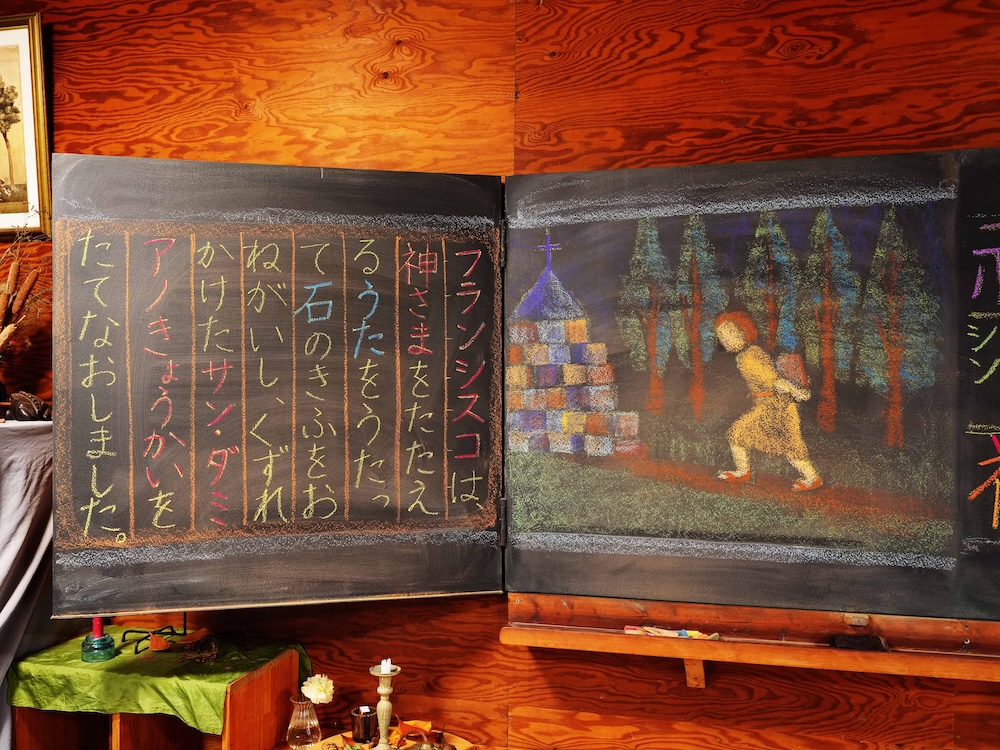 フランシスコは、
神さまをたたえ
るうたをうたっ
て石のきふをお
ねがいし、くずれ
かけたサン・ダミ
アノきょうかいを
たてなおしました。